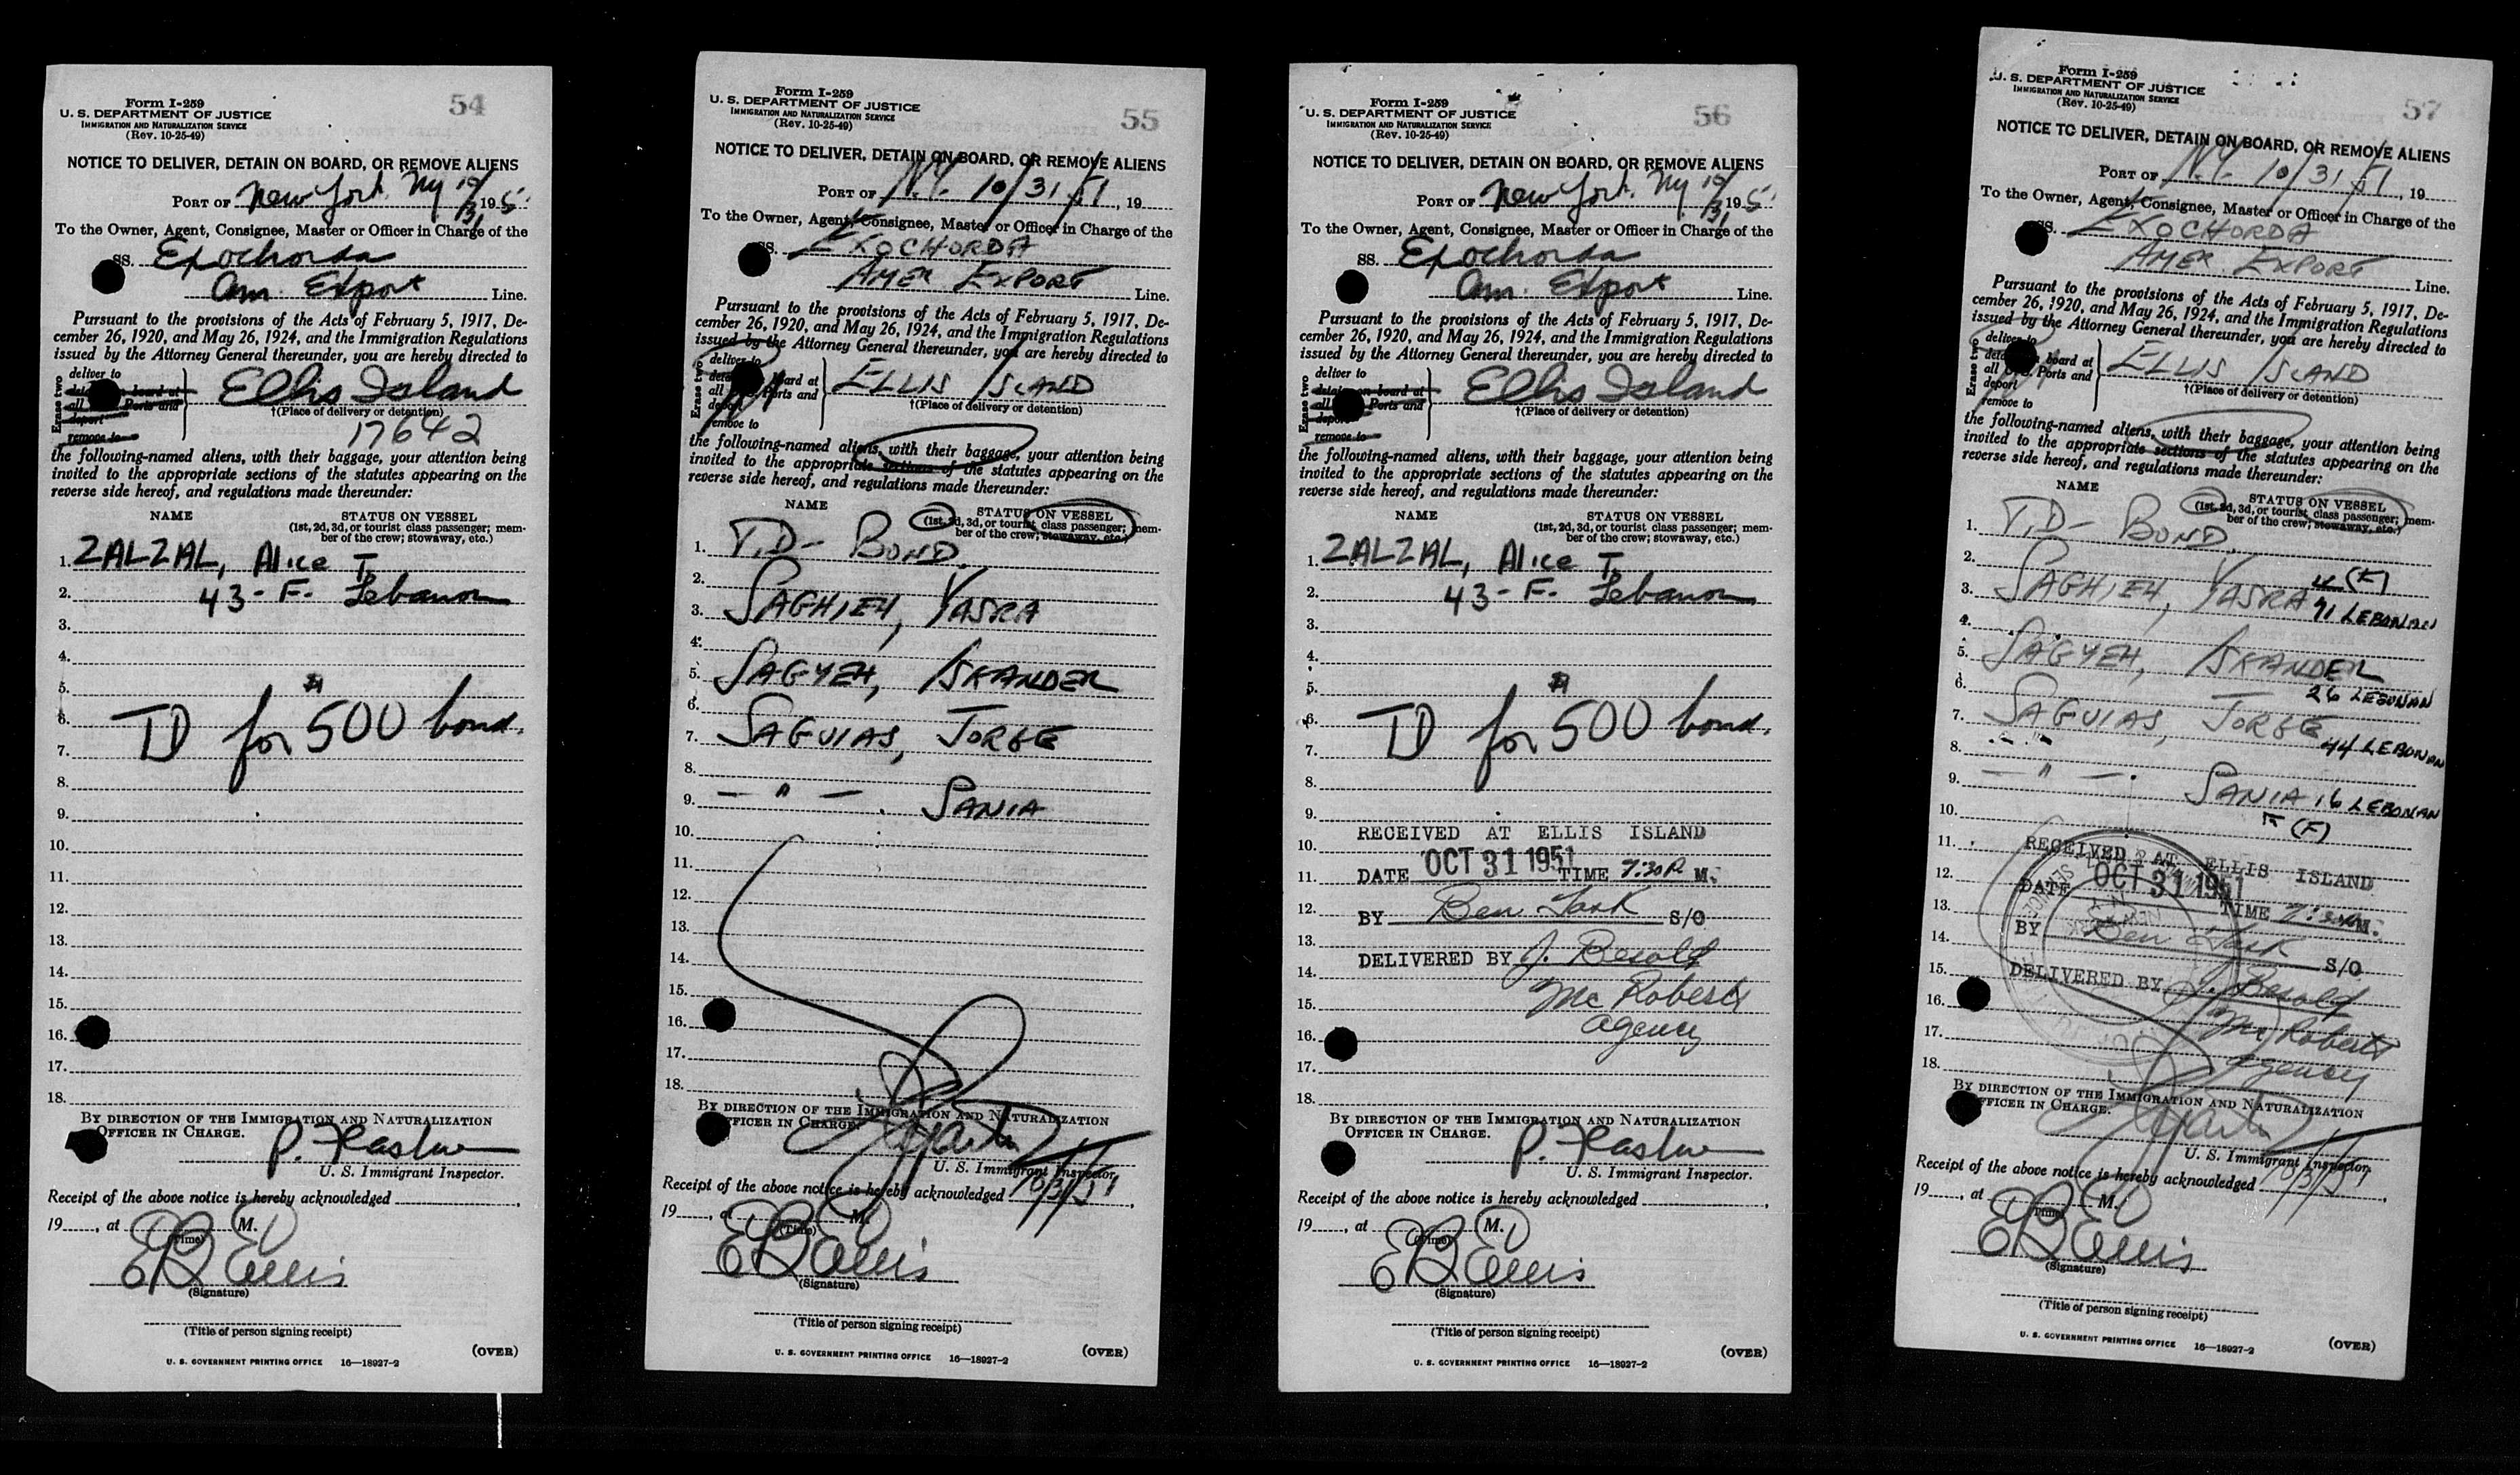 Form I-259
U. S. DEPARTMENT OF JUSTICE
IMMIGRATION AND NATURALIZATION SERVICE
(Rev. 10-25-49)
54
NOTICE TO DELIVER, DETAIN ON BOARD, OR REMOVE ALIENS
PORT OF New York, Ny 10/31 195
To the Owner, Agent, Consignee, Master or Officer in Charge of the
SS. Exochorda
Am. Export Line.
Pursuant to the provisions of the Acts of February 5, 1917, De-
cember 26, 1920, and May 26, 1924, and the Immigration Regulations
issued by the Attorney General thereunder, you are hereby directed to
Erase two
deliver to
board at
all Ports and
deport
remove to
Ellis Island
†(Place of delivery or detention)
17642
the following-named aliens, with their baggage, your attention being
invited to the appropriate sections of the statutes appearing on the
reverse side hereof, and regulations made thereunder:
NAME STATUS ON VESSEL
(1st, 2d, 3d, or tourist class passenger; mem-
ber of the crew; stowaway, etc.)
1. ZALZAL, Alice T.
2. 43- F. Lebanon
3.
4.
5.
6. TD for $500 bond.
7.
8.
9.
10.
11.
12.
13.
14.
15.
16.
17.
18.
BY DIRECTION OF THE IMMIGRATION AND NATURALIZATION
OFFICER IN CHARGE.
U. S. Immigrant Inspector.
Receipt of the above notice is hereby acknowledged
19 , at M.
(Time)
EB Ellis
(Signature)
(Title of person signing receipt)
(OVER)
U. S. GOVERNMENT PRINTING OFFICE 16—18927-2
Form I-259
U. S. DEPARTMENT OF JUSTICE
IMMIGRATION AND NATURALIZATION SERVICE
(Rev. 10-25-49)
55
NOTICE TO DELIVER, DETAIN ON BOARD, OR REMOVE ALIENS
PORT OF N.Y. 10/31/51, 19
To the Owner, Agent, Consignee, Master or Officer in Charge of the
SS. EXOCHORDA
AMER EXPORT Line.
Pursuant to the provisions of the Acts of February 5, 1917, De-
cember 26, 1920, and May 26, 1924, and the Immigration Regulations
issued by the Attorney General thereunder, you are hereby directed to
Erase two
deliver to
board at
all Ports and
deport
remove to
ELLIS ISLAND
†(Place of delivery or detention)
the following-named aliens, with their baggage, your attention being
invited to the appropriate sections of the statutes appearing on the
reverse side hereof, and regulations made thereunder:
NAME STATUS ON VESSEL
(1st, 2d, 3d, or tourist class passenger; mem-
ber of the crew; stowaway, etc.)
1. T.D- BOND.
2.
3. SAGHIEH, YASRA
4.
5. SAGYEH, ISKANDER
6.
7. SAGUIAS, JORGE
8.
9. — " — . SANIA
10.
11.
12.
13.
14.
15.
16.
17.
18.
BY DIRECTION OF THE IMMIGRATION AND NATURALIZATION
OFFICER IN CHARGE.
U. S. Immigrant Inspector.
Receipt of the above notice is hereby acknowledged 10/31/51,
19 , at M.
(Time)
EB Ellis
(Signature)
(Title of person signing receipt)
(OVER)
U. S. GOVERNMENT PRINTING OFFICE 16—18927-2
Form I-259
U. S. DEPARTMENT OF JUSTICE
IMMIGRATION AND NATURALIZATION SERVICE
(Rev. 10-25-49)
56
NOTICE TO DELIVER, DETAIN ON BOARD, OR REMOVE ALIENS
PORT OF New York, Ny 10/31 195
To the Owner, Agent, Consignee, Master or Officer in Charge of the
SS. Exochorda
Am. Export Line.
Pursuant to the provisions of the Acts of February 5, 1917, De-
cember 26, 1920, and May 26, 1924, and the Immigration Regulations
issued by the Attorney General thereunder, you are hereby directed to
Erase two
deliver to
detain on board at
all Ports and
remove to
Ellis Island
†(Place of delivery or detention)
the following-named aliens, with their baggage, your attention being
invited to the appropriate sections of the statutes appearing on the
reverse side hereof, and regulations made thereunder:
NAME STATUS ON VESSEL
(1st, 2d, 3d, or tourist class passenger; mem-
ber of the crew; stowaway, etc.)
1. ZALZAL, Alice T.
2. 43- F. Lebanon
3.
4.
5.
6. TD for $500 bond.
7.
8.
9.
RECEIVED AT ELLIS ISLAND
10.
11. DATE OCT 31 1951 TIME 7:30 P M.
12. BY Ben Task S/O
13.
DELIVERED BY J. Besold
14.
15. Mc Roberts
16. agency
17.
18.
BY DIRECTION OF THE IMMIGRATION AND NATURALIZATION
OFFICER IN CHARGE.
U. S. Immigrant Inspector.
Receipt of the above notice is hereby acknowledged
19 , at M.
(Time)
EB Ellis
(Signature)
(Title of person signing receipt)
(OVER)
U. S. GOVERNMENT PRINTING OFFICE 16—18927-2
Form I-259
U. S. DEPARTMENT OF JUSTICE
IMMIGRATION AND NATURALIZATION SERVICE
(Rev. 10-25-49)
57
NOTICE TO DELIVER, DETAIN ON BOARD, OR REMOVE ALIENS
PORT OF N.Y. 10/31/51, 19
To the Owner, Agent, Consignee, Master or Officer in Charge of the
SS. EXOCHORDA
AMER. EXPORT Line.
Pursuant to the provisions of the Acts of February 5, 1917, De-
cember 26, 1920, and May 26, 1924, and the Immigration Regulations
issued by the Attorney General thereunder, you are hereby directed to
Erase two
deliver to
board at
all Ports and
deport
remove to
ELLIS ISLAND
†(Place of delivery or detention)
the following-named aliens, with their baggage, your attention being
invited to the appropriate sections of the statutes appearing on the
reverse side hereof, and regulations made thereunder:
NAME STATUS ON VESSEL
(1st, 2d, 3d, or tourist class passenger; mem-
ber of the crew; stowaway, etc.)
1. T.D- BOND.
2.
3. SAGHIEH, YASRA 71 LEBONAN
4.
5. SAGYEH, ISKANDER
6. 26 LEBONAN
7. SAGUIAS, JORGE
8. 44 LEBONAN
9. — " — . SANIA 16 LEBONAN
10. (F)
11. RECEIVED AT ELLIS ISLAND
12. DATE OCT 31 1951 TIME 7:30 P M.
13.
14. BY Ben Task S/O
15. DELIVERED BY J. Besold
16. Mc Roberts
17.
18. agency
BY DIRECTION OF THE IMMIGRATION AND NATURALIZATION
OFFICER IN CHARGE.
U. S. Immigrant Inspector.
Receipt of the above notice is hereby acknowledged 10/31/51,
19 , at M.
(Time)
EB Ellis
(Signature)
(Title of person signing receipt)
(OVER)
U. S. GOVERNMENT PRINTING OFFICE 16—18927-2